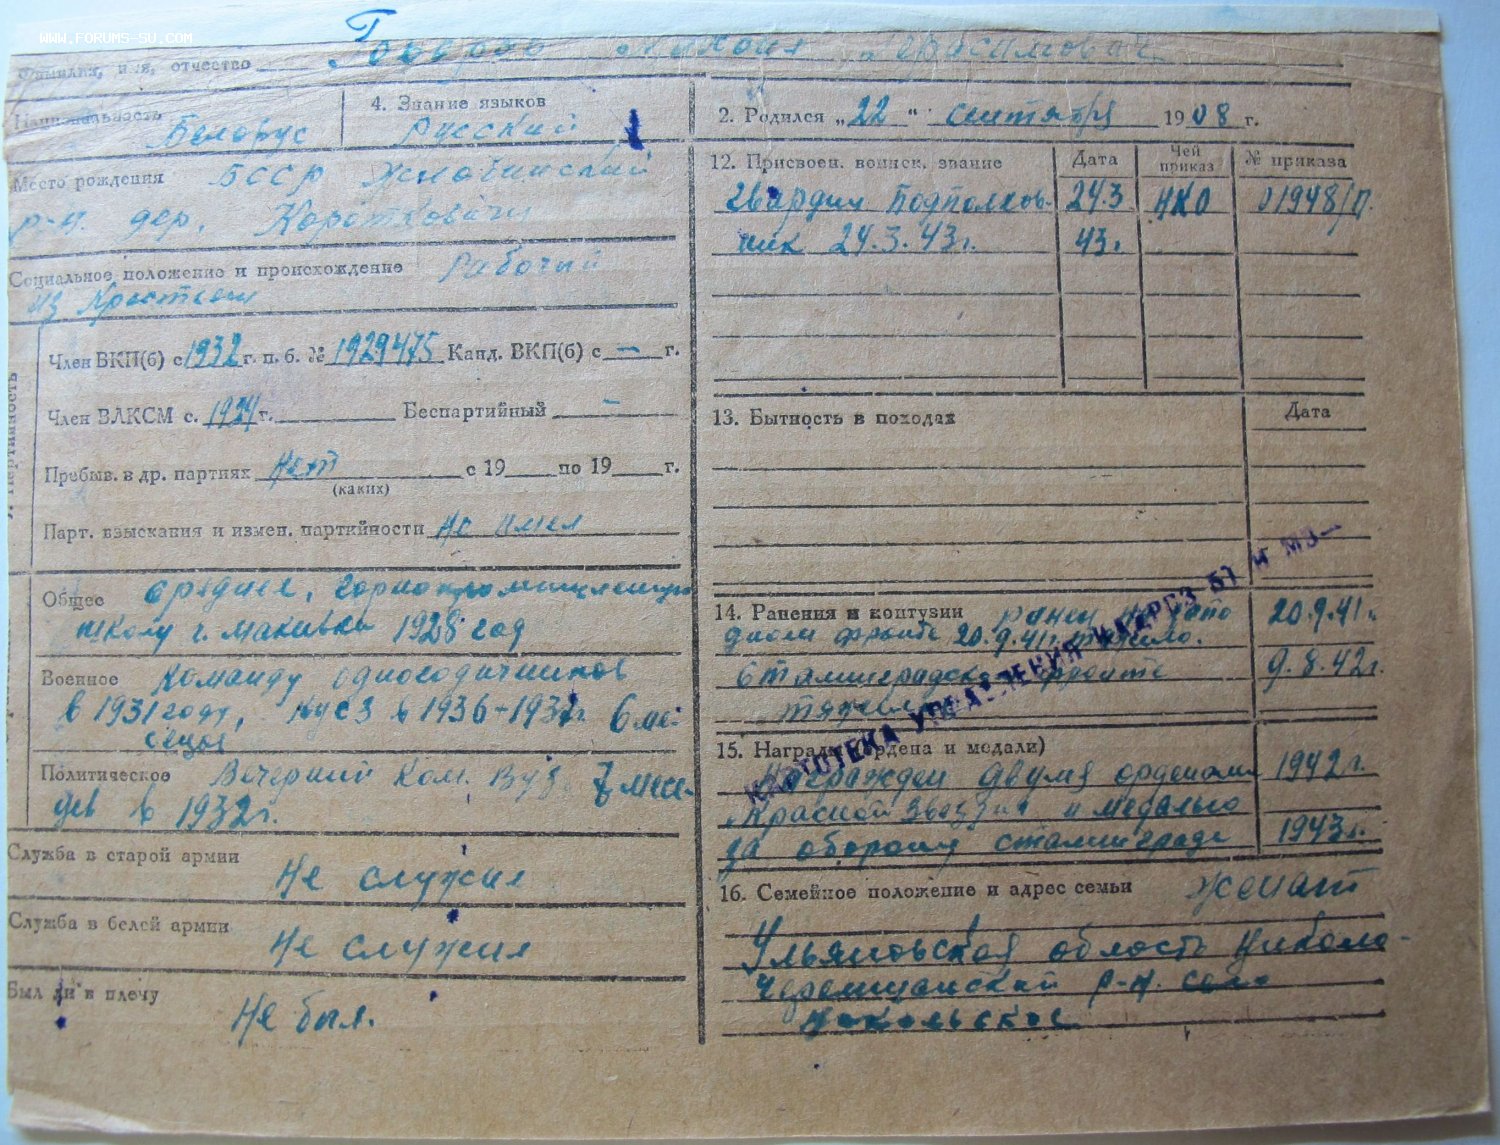 WWW.FORUMS-SU.COM
Фамилия, имя, отчество Михаил Герасимович
Национальность Белорус
4. Знание языков Русский
Место рождения БССР Жлобинский
р-н. дер. Коротковичи
Социальное положение и происхождение Рабочий
из Крестьян
Член ВКП(б) с 1932 г. п. б. № 1929475 Канд. ВКП(б) с — г.
Член ВЛКСМ с. 1924 г. Беспартийный —
Пребыв. в др. партиях Нет с 19 по 19 г.
(каких)
Парт. взыскания и измен. партийности Не имел
Партийность
Общее среднее, горнопромышленную
школу г. Макивка 1928 год
Военное Команду одногодичников
в 1931 году, в 1936-1937г. 6 ме-
сецы
Политическое Вечерний Ком. Вуз 7 месе-
цев в 1932г.
Служба в старой армии
Не служил
Служба в белой армии
Не служил
Был ли в плену
Не был.
2. Родился „22“ сентября 1908 г.
12. Присвоен. воинск. звание Дата Чей приказ № приказа
Гвардии Подполков- 24.3 НКО 01948/п.
ник 24.3.43г. 43г.
13. Бытность в походах Дата
14. Ранения и контузии ранен на 20.9.41г.
фронте 20.9.41г. тяжело.
Сталинградском фронте 9.8.42г.
тяжело
15. Награды (ордена и медали)
Награжден двумя орденами 1942г.
Красной Звезды и медалью
за оборону сталинграда 1943г.
КАРТОТЕКА УПРАВЛЕНИЯ КАДРОВ БТ и МВ
16. Семейное положение и адрес семьи женат
Ульяновская область Николо-
Черемшанский р-н. село
Никольское